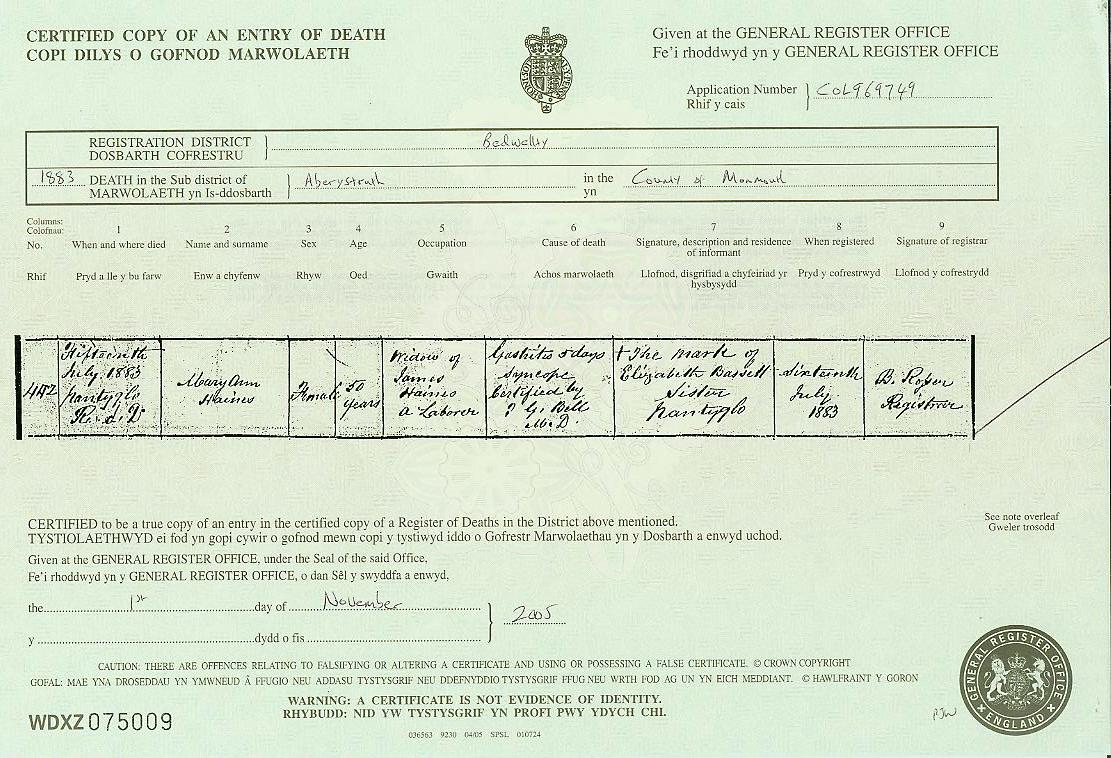 CERTIFIED COPY OF AN ENTRY OF DEATH
COPI DILYS O GOFNOD MARWOLAETH
Given at the GENERAL REGISTER OFFICE
Fe'i rhoddwyd yn y GENERAL REGISTER OFFICE
Application Number COL969749
Rhif y cais
REGISTRATION DISTRICT Bedwellty
DOSBARTH COFRESTRU
1883 DEATH in the Sub district of Aberystruth in the County of Monmouth
MARWOLAETH yn Is-ddosbarth yn
Columns:
Colofnau: 1 2 3 4 5 6 7 8 9
No. When and where died Name and surname Sex Age Occupation Cause of death Signature, description and residence of informant When registered Signature of registrar
Rhif Pryd a lle y bu farw Enw a chyfenw Rhyw Oed Gwaith Achos marwolaeth Llofnod, disgrifiad a chyfeiriad yr hysbysydd Pryd y cofrestrwyd Llofnod y cofrestrydd
Fifteenth
July 1883
Nantyglo
R.S.D.
Mary Ann
Haines
Female
50
years
Widow of
James
Haines
a Laborer
Gastritis 5 days
Syncope
Certified by
Bell
M.D.
+ The mark of
Elizabeth Bassett
Sister
Nantyglo
Sixteenth
July
1883
B. Roper
Registrar
CERTIFIED to be a true copy of an entry in the certified copy of a Register of Deaths in the District above mentioned.
TYSTIOLAETHWYD ei fod yn gopi cywir o gofnod mewn copi y tystiwyd iddo o Gofrestr Marwolaethau yn y Dosbarth a enwyd uchod.
See note overleaf
Gweler trosodd
Given at the GENERAL REGISTER OFFICE, under the Seal of the said Office,
Fe'i rhoddwyd yn y GENERAL REGISTER OFFICE, o dan Sêl y swyddfa a enwyd,
the 1st day of November 2005
y dydd o fis
CAUTION: THERE ARE OFFENCES RELATING TO FALSIFYING OR ALTERING A CERTIFICATE AND USING OR POSSESSING A FALSE CERTIFICATE. © CROWN COPYRIGHT
GOFAL: MAE YNA DROSEDDAU YN YMWNEUD Â FFUGIO NEU ADDASU TYSTYSGRIF NEU DDEFNYDDIO TYSTYSGRIF FFUG NEU WRTH FOD AG UN YN EICH MEDDIANT. © HAWLFRAINT Y GORON
WARNING: A CERTIFICATE IS NOT EVIDENCE OF IDENTITY.
RHYBUDD: NID YW TYSTYSGRIF YN PROFI PWY YDYCH CHI.
WDXZ 075009
036563 9230 04/05 SPSL 010724
GENERAL REGISTER OFFICE
ENGLAND